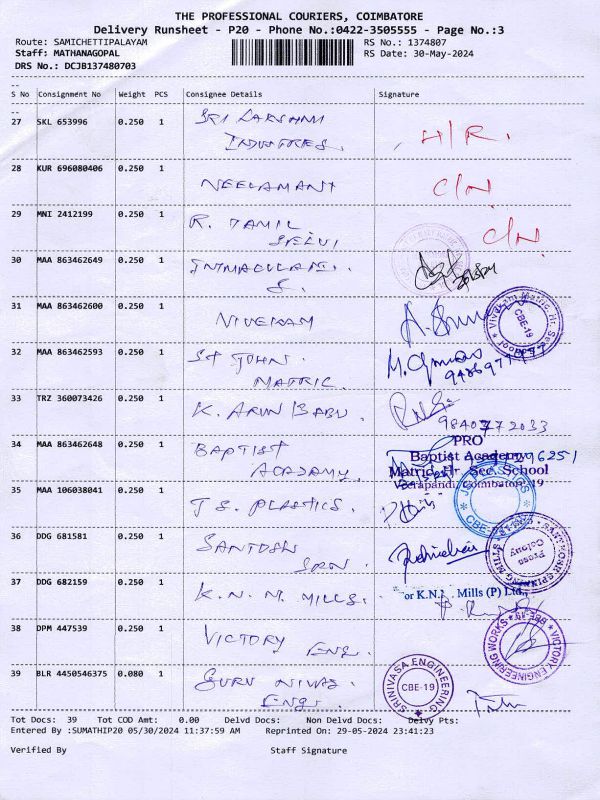 THE PROFESSIONAL COURIERS, COIMBATORE
Delivery Runsheet - P20 - Phone No.:0422-3505555 - Page No.:3
Route: SAMICHETTIPALAYAM RS No.: 1374807
Staff: MATHANAGOPAL RS Date: 30-May-2024
DRS No.: DCJB137480703
S No Consignment No Weight PCS Consignee Details Signature
27 SKL 653996 0.250 1 SRI LAKSHMI
INDUSTRIES. H/R.
28 KUR 696080406 0.250 1 NEELAMANI C/N.
29 MNI 2412199 0.250 1 R. TAMIL
SELVI C/N
30 MAA 863462649 0.250 1 INMACULATE.
S.
31 MAA 863462600 0.250 1 NIVEKAM
Vivekam Matric Hr. Sec. School CBE-19
32 MAA 863462593 0.250 1 ST JOHN.
MATRIC.
33 TRZ 360073426 0.250 1 K. ARUN BABU.
34 MAA 863462648 0.250 1 BAPTIST
ACADEMY.
PRO
Baptist Academy
Matric. Hr. Sec. School
Veerapandi, Coimbatore-19
35 MAA 106038041 0.250 1 J.S. PLASTICS.
36 DDG 681581 0.250 1 SANTOSH
SPN.
SPINNING MILLS Press Colony
37 DDG 682159 0.250 1 K. N. M. MILLS.
or K.N. Mills (P) Ltd.,
38 DPM 447539 0.250 1 VICTORY ENG.
VICTORY ENGINEERING WORKS
39 BLR 4450546375 0.080 1 GURU NIWAS
ENGI.
SRINIVASA ENGINEERING CBE-19
Tot Docs: 39 Tot COD Amt: 0.00 Delvd Docs: Non Delvd Docs: Delvy Pts:
Entered By :SUMATHIP20 05/30/2024 11:37:59 AM Reprinted On: 29-05-2024 23:41:23
Verified By Staff Signature